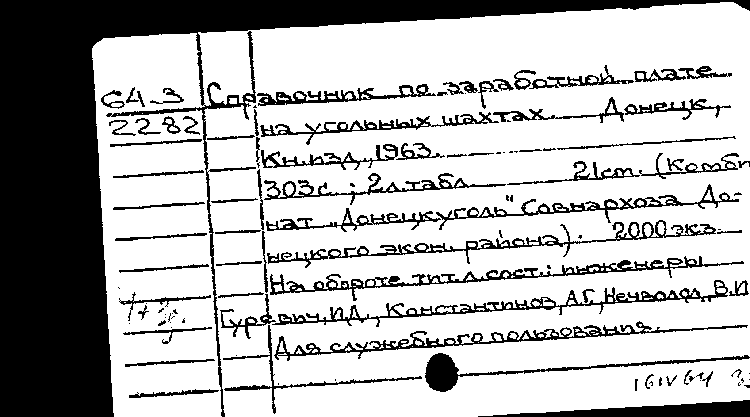 64-3 Справочник по заработной плате
2282 на угольных шахтах. Донецк,
Кн.изд., 1963.
303с.; 2л.табл. 21см. (Комбп
нат „Донецкуголь" Совнархоза До-
нецкого экон. района). 2000экз.
На обороте тит.л.сост.: инженеры
Гуревич, П.Д., Константинов, А.Г., Нечволод, В.П
Для служебного пользования.
16IV64